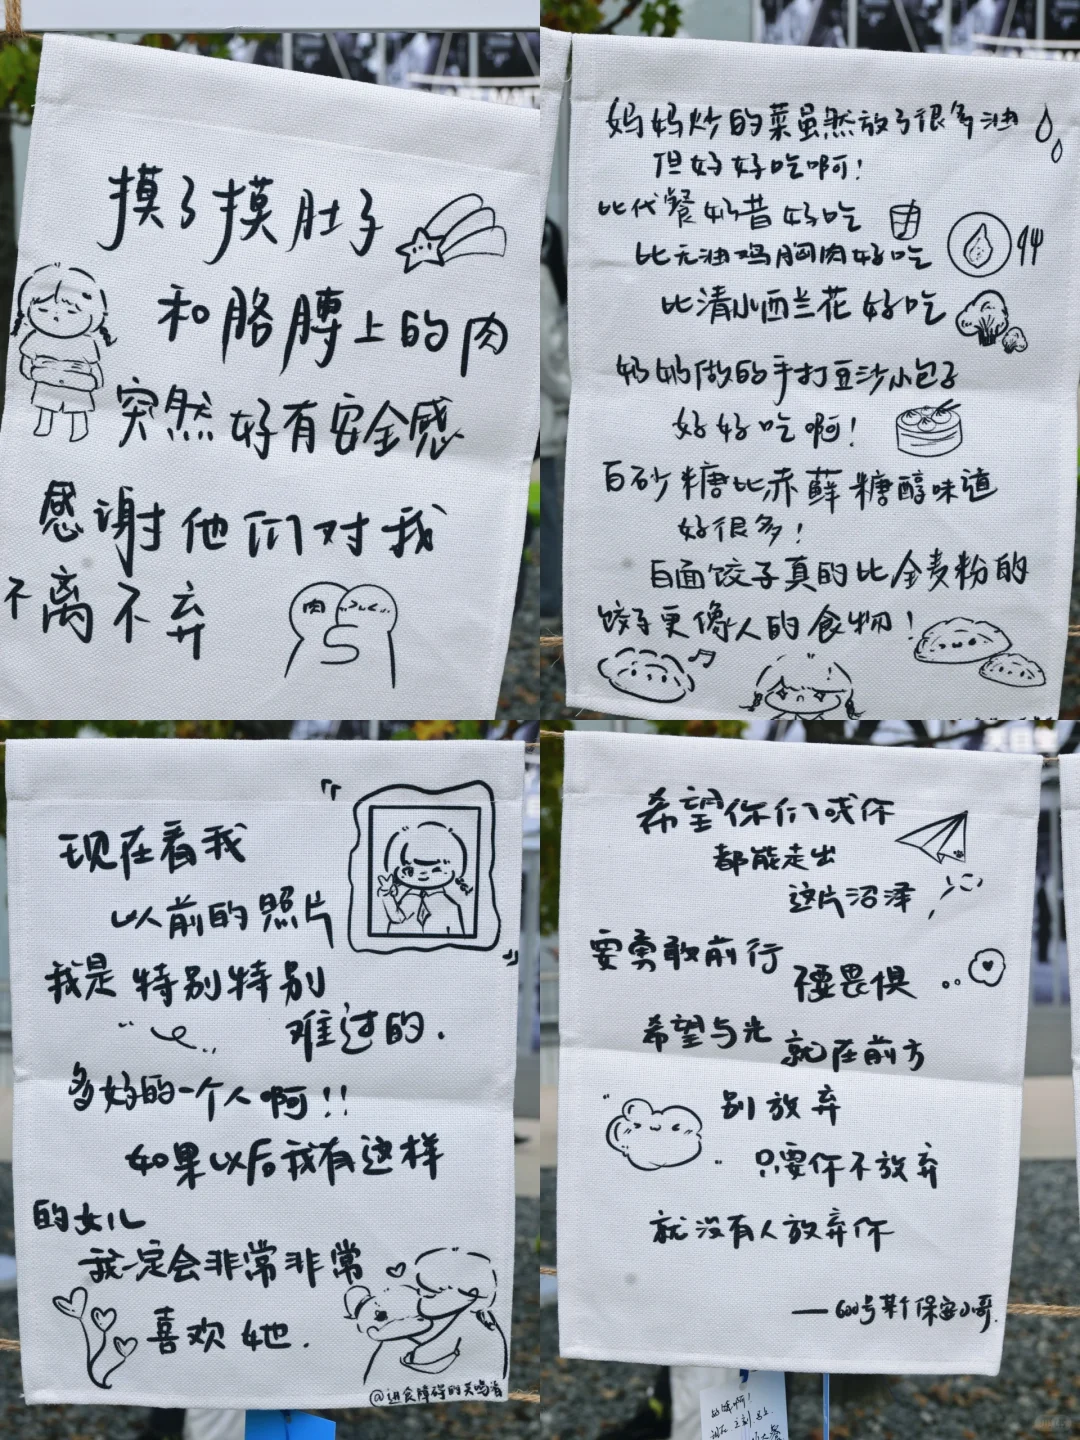 摸了摸肚子
和胳膊上的肉
突然好有安全感
感谢他们对我
不离不弃
肉
妈妈炒的菜虽然放了很多油
但好好吃啊！
比代餐奶昔好吃
比无油鸡胸肉好吃
比清水西兰花好吃
妈妈做的手打豆沙小包子
好好吃啊！
白砂糖比赤藓糖醇味道
好很多！
白面饺子真的比全麦粉的
饺子更像人的食物！
现在看我
以前的照片
我是特别特别
难过的.
多好的一个人啊！！
如果以后我有这样
的女儿
我一定会非常非常
喜欢她.
@进食障碍的关鸣谐
希望你们或你
都能走出
这片沼泽
要勇敢前行
不要畏惧
希望与光
就在前方
别放弃
只要你不放弃
就没有人放弃你
——600号某个保安小哥.